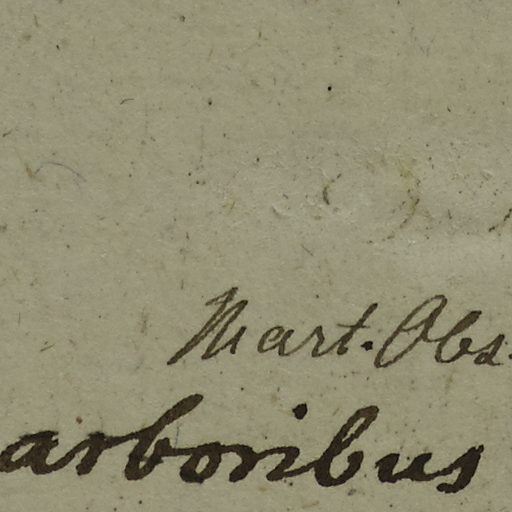 Mart. Obs.
arboribus